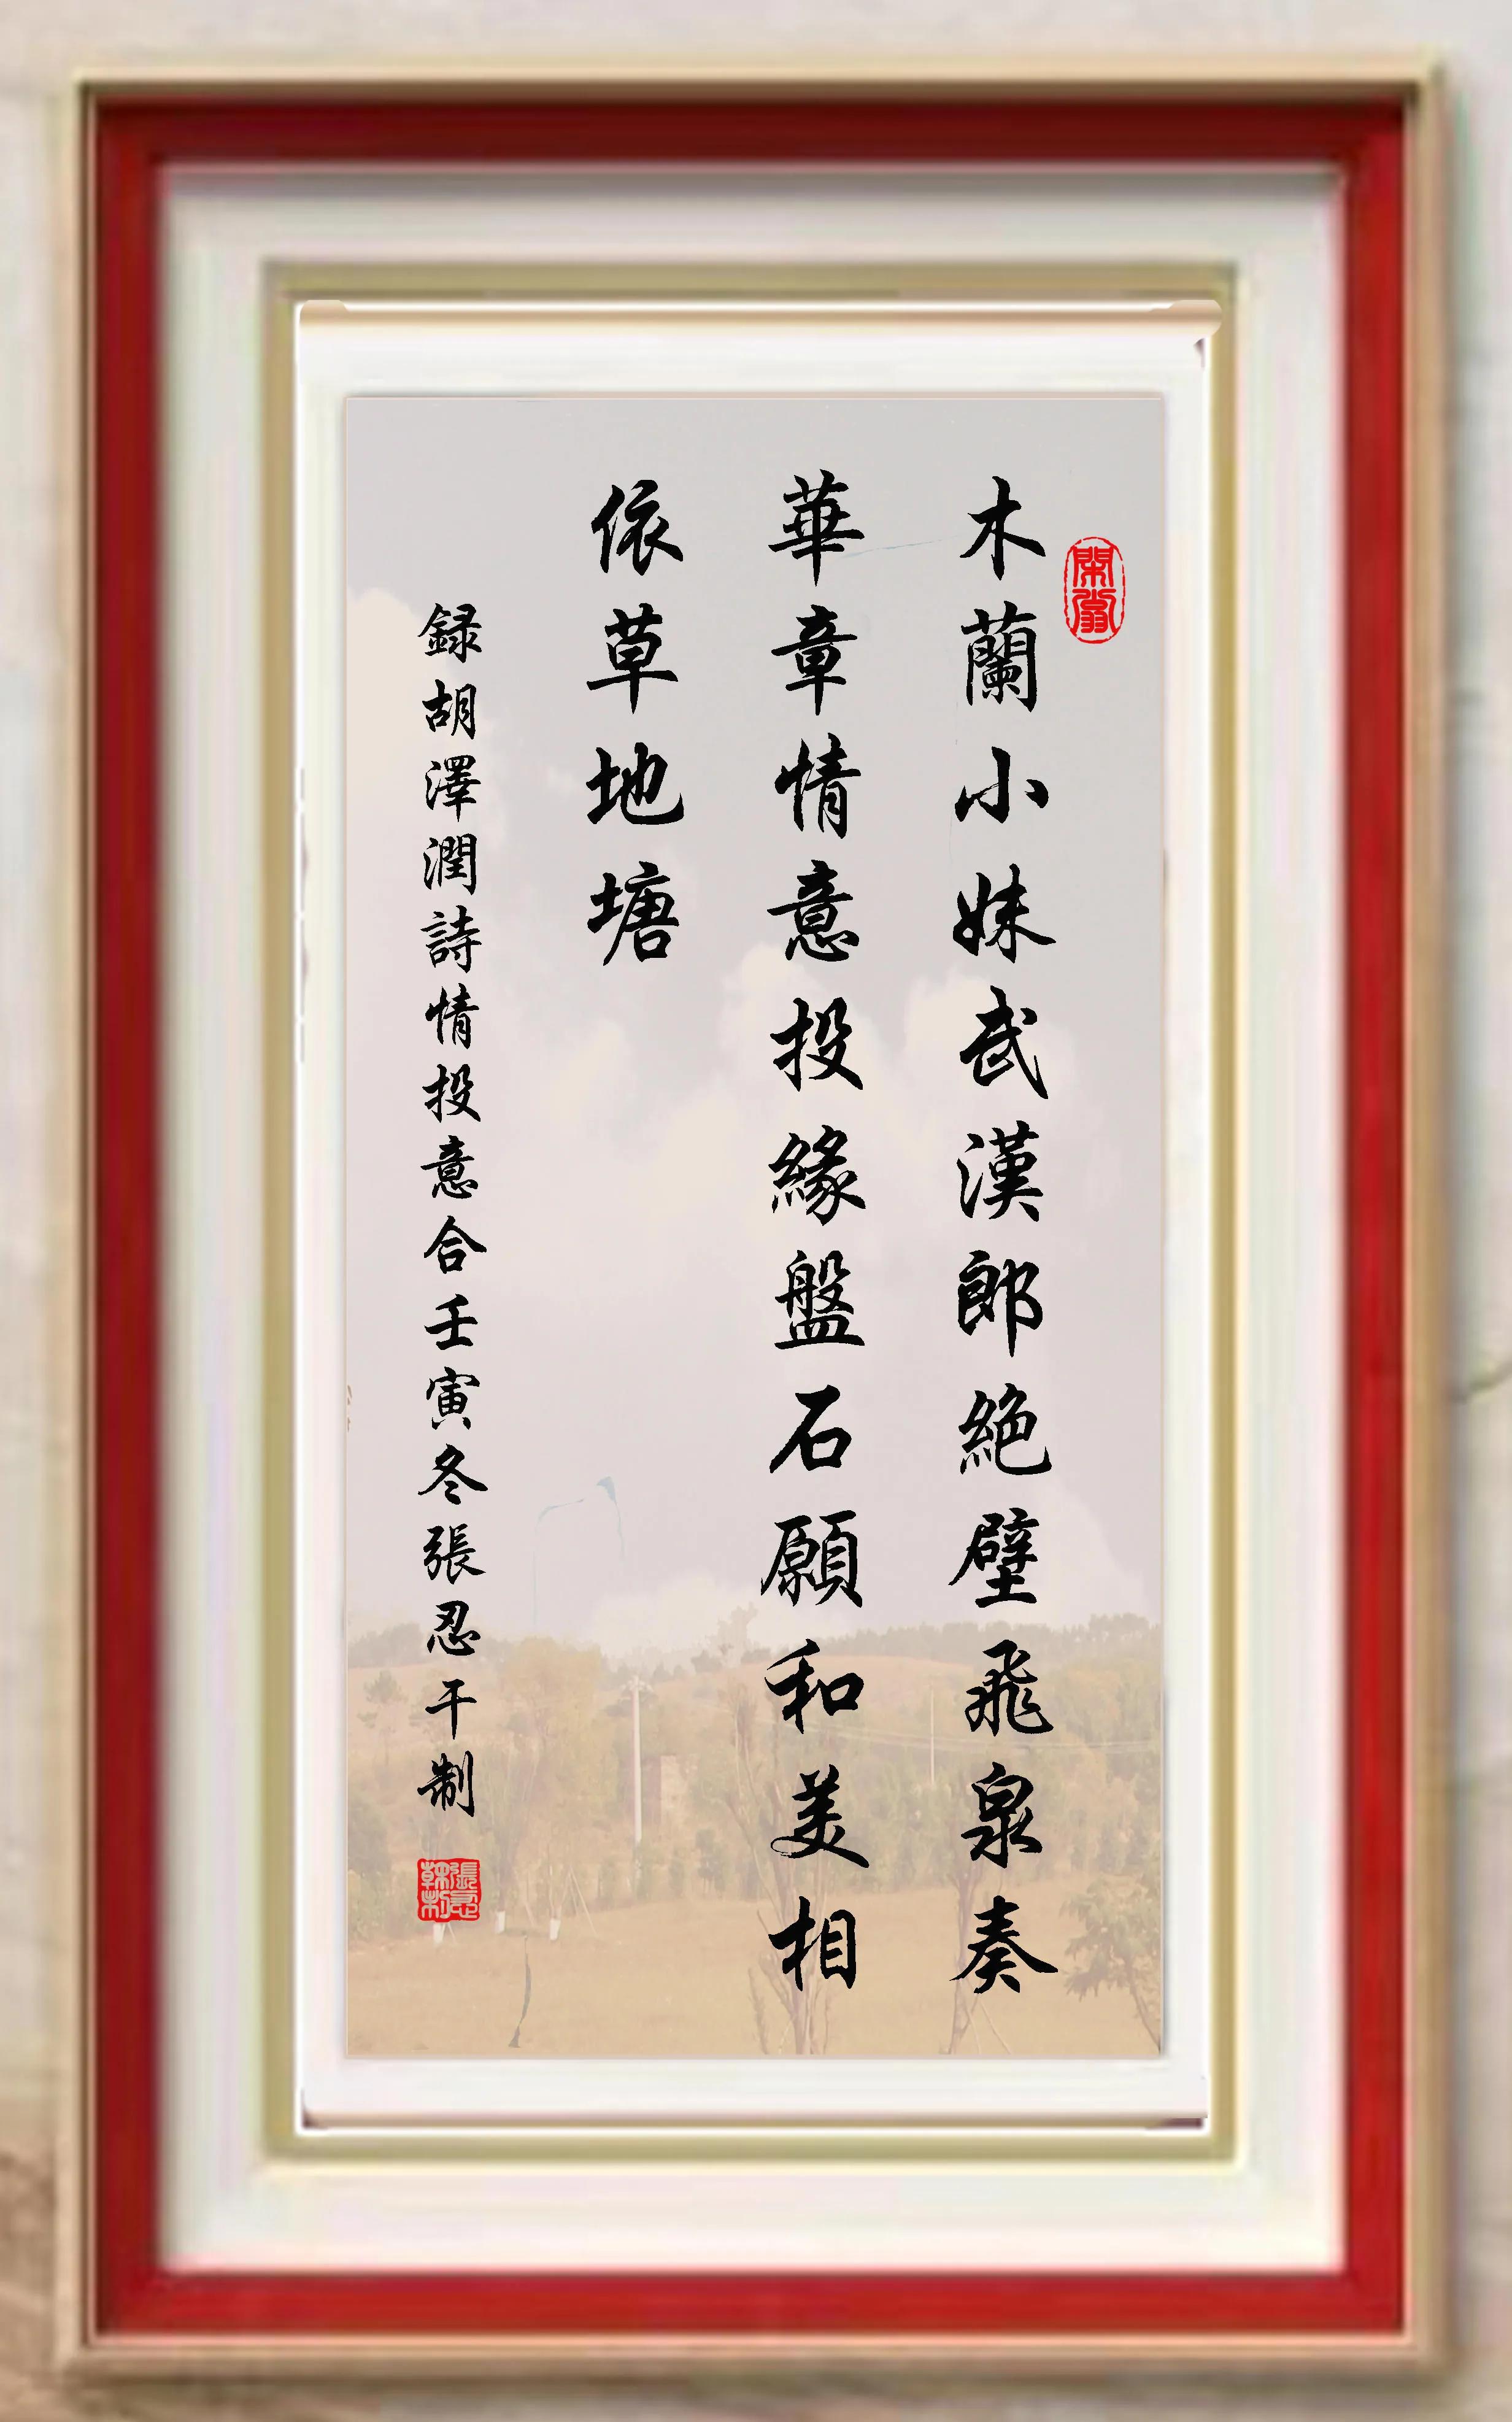 木蘭小妹武漢郎絶壁飛泉奏
華章情意投緣盤石願和美相
依草地塘
録胡澤潤詩情投意合壬寅冬張忍干制